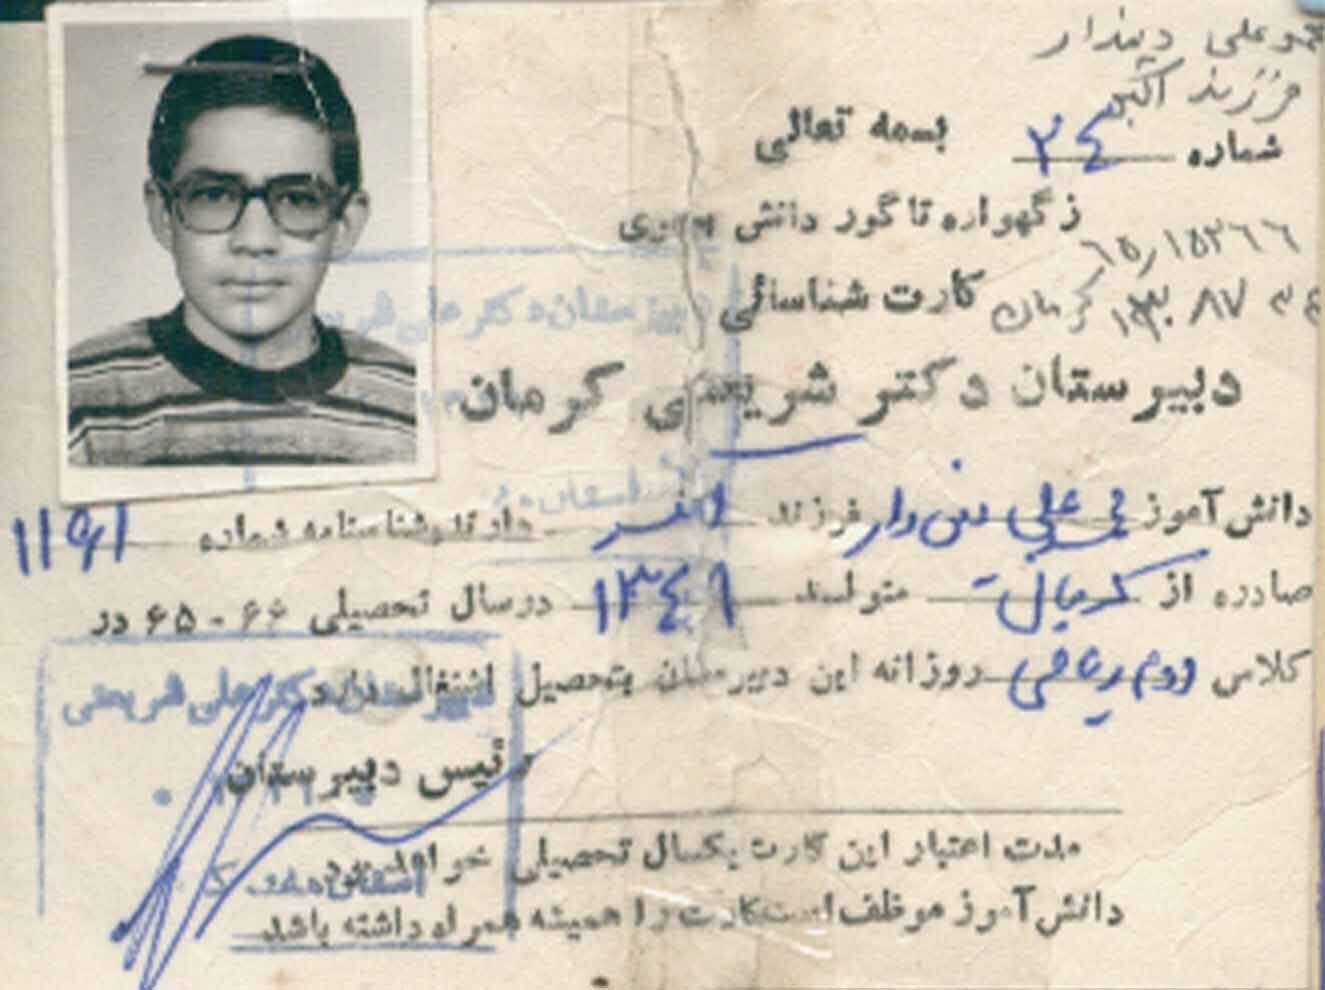 علی دیندار
فرزند اکبر
بسمه تعالی
شماره ۲٤
ز گهواره تا گور دانش بجوی
کارت شناسائی
کرمان
دبیرستان دکتر شریعتی کرمان
دبیرستان دکتر علی شریعتی
دانش آموز محمد علی دین دار فرزند اکبر دارنده شناسنامه شماره
صادره از متولد ۱۳٤۹ در سال تحصیلی ۶۶ - ۶۵ در
کلاس دوم ریاضی روزانه این دبیرستان بتحصیل اشتغال دارد
دبیرستان دکتر علی شریعتی
رئیس دبیرستان
مدت اعتبار این کارت یکسال تحصیلی خواهد بود
دانش آموز موظف است کارت را همیشه همراه داشته باشد